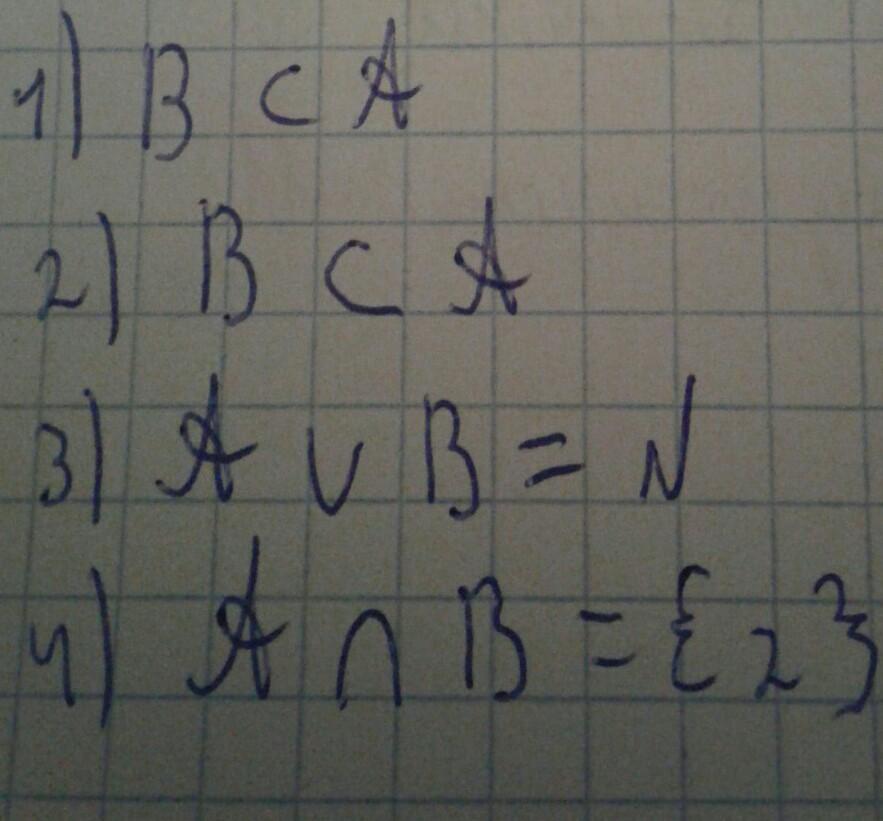 1) B ⊂ A
2) B ⊂ A
3) A ∪ B = N
4) A ∩ B = {2}